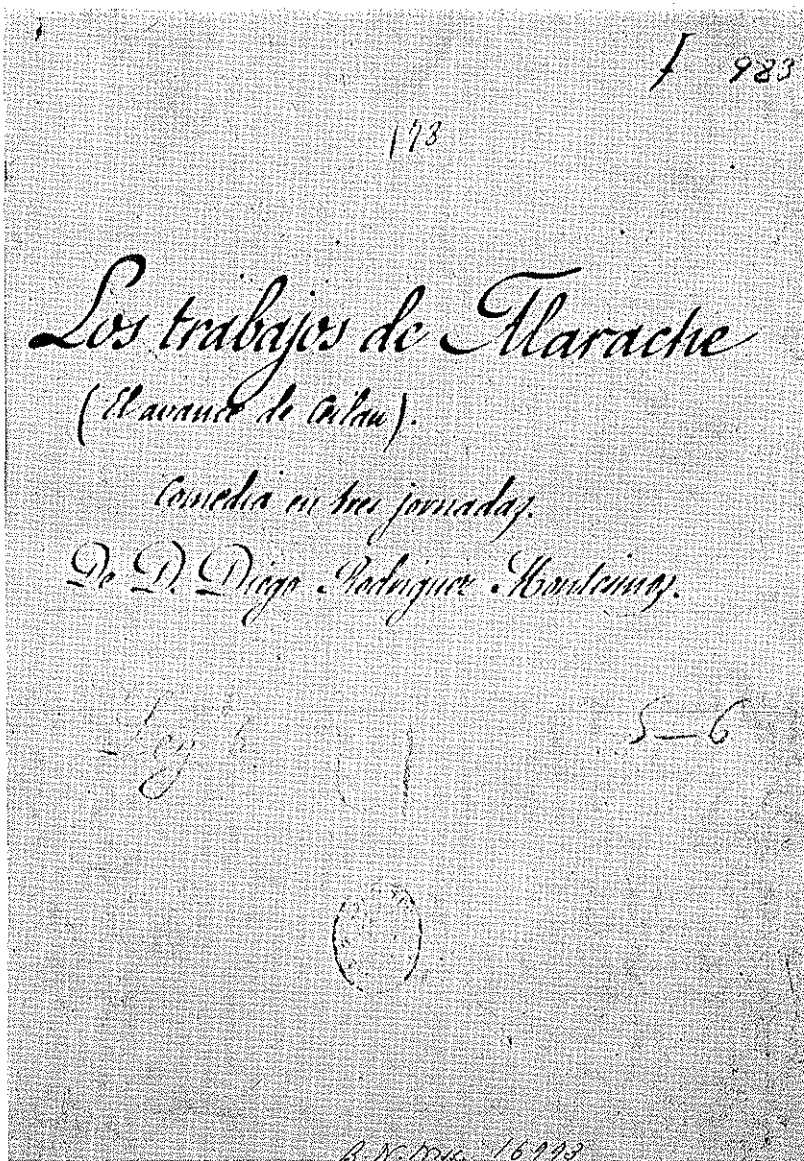 J 983
173
Los trabajos de Marache
(El avance de Ceilan).
Comedia en tres jornadas.
De D. Diego Rodriguez Montesinos.
Leg.º 6
5—6
B.N. Mss. 16993